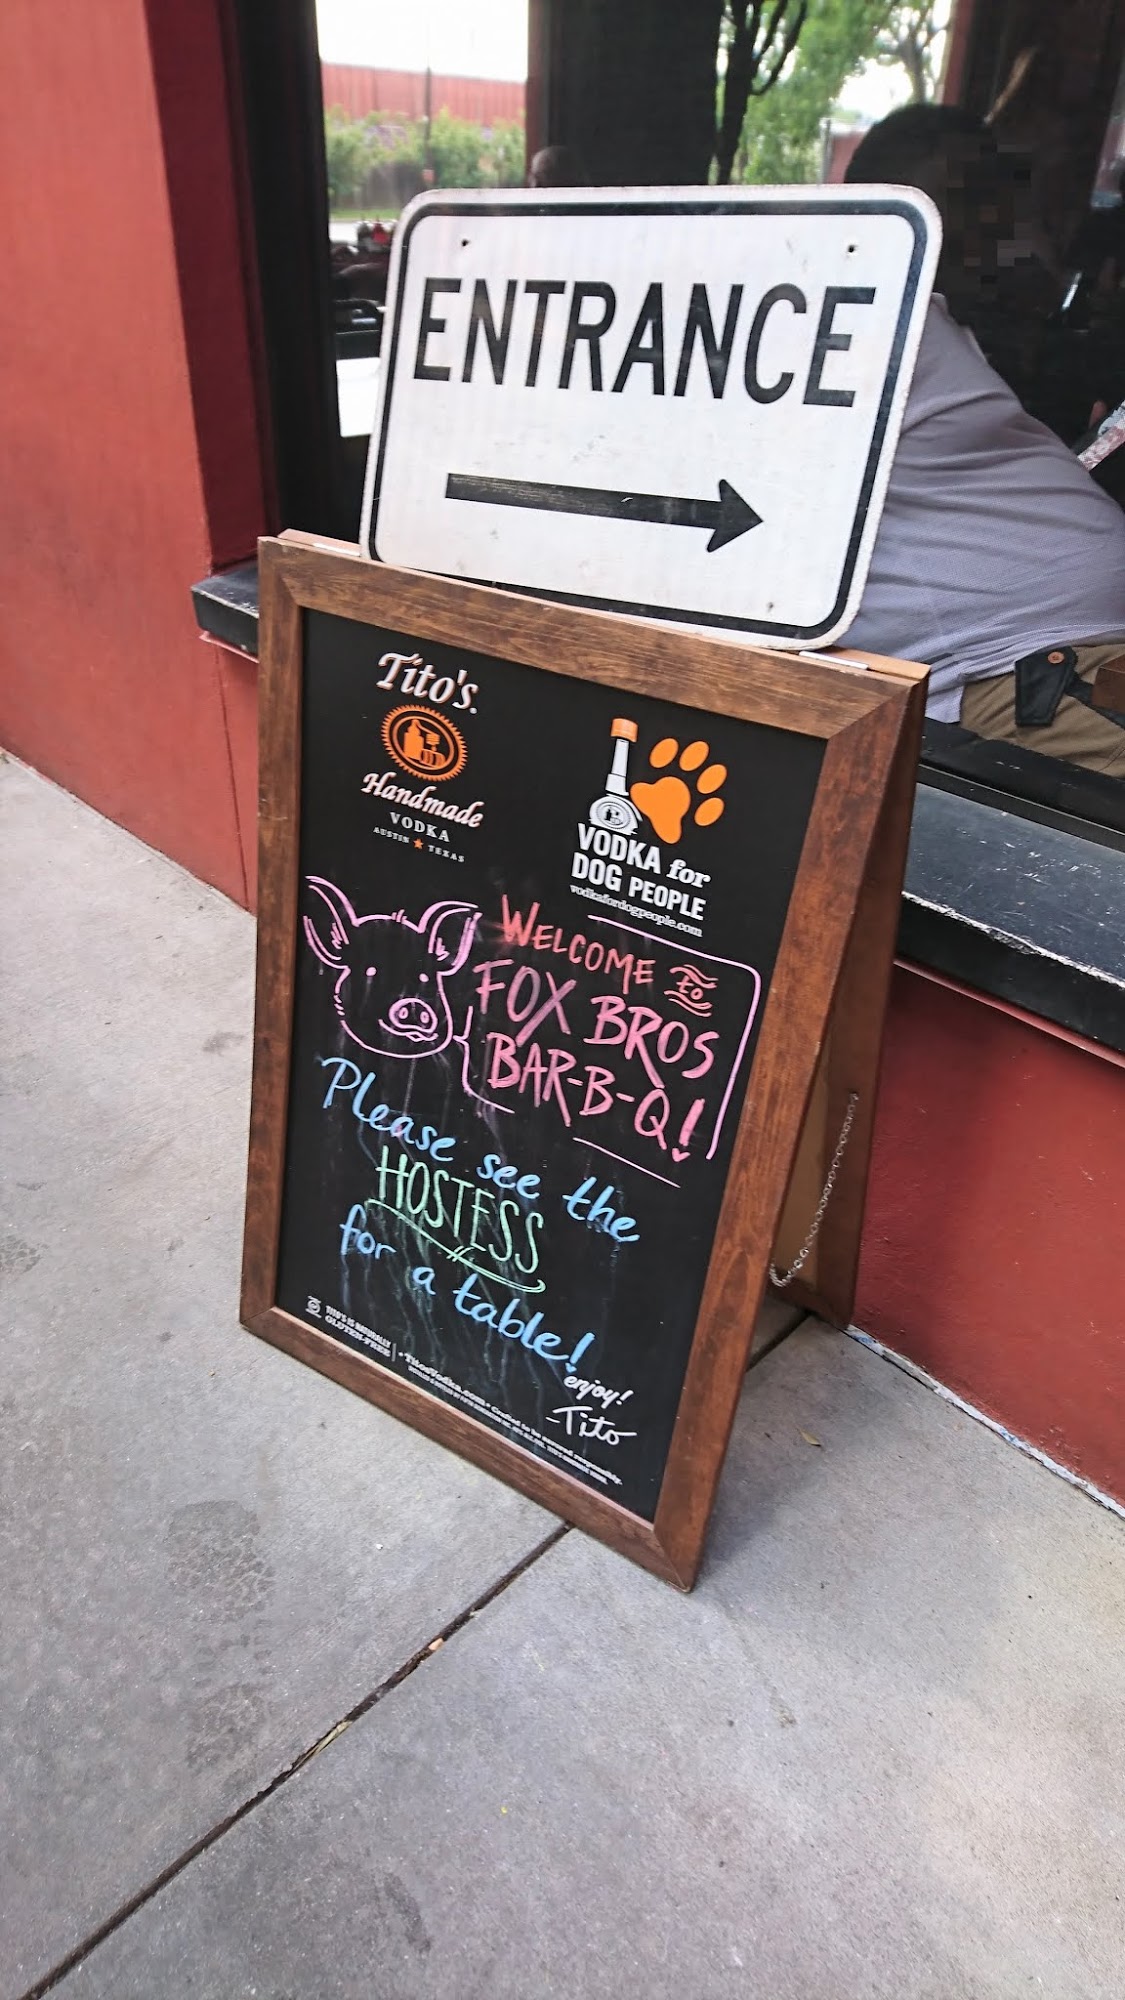 ENTRANCE
Tito's
Handmade
VODKA
AUSTIN ★ TEXAS
VODKA for
DOG PEOPLE
vodkafordogpeople.com
WELCOME TO
FOX BROS
BAR-B-Q!
Please see the
HOSTESS
for a table!
enjoy!
-Tito
TITO'S IS NATURALLY
GLUTEN-FREE
TitosVodka.com • Crafted to be savored responsibly.